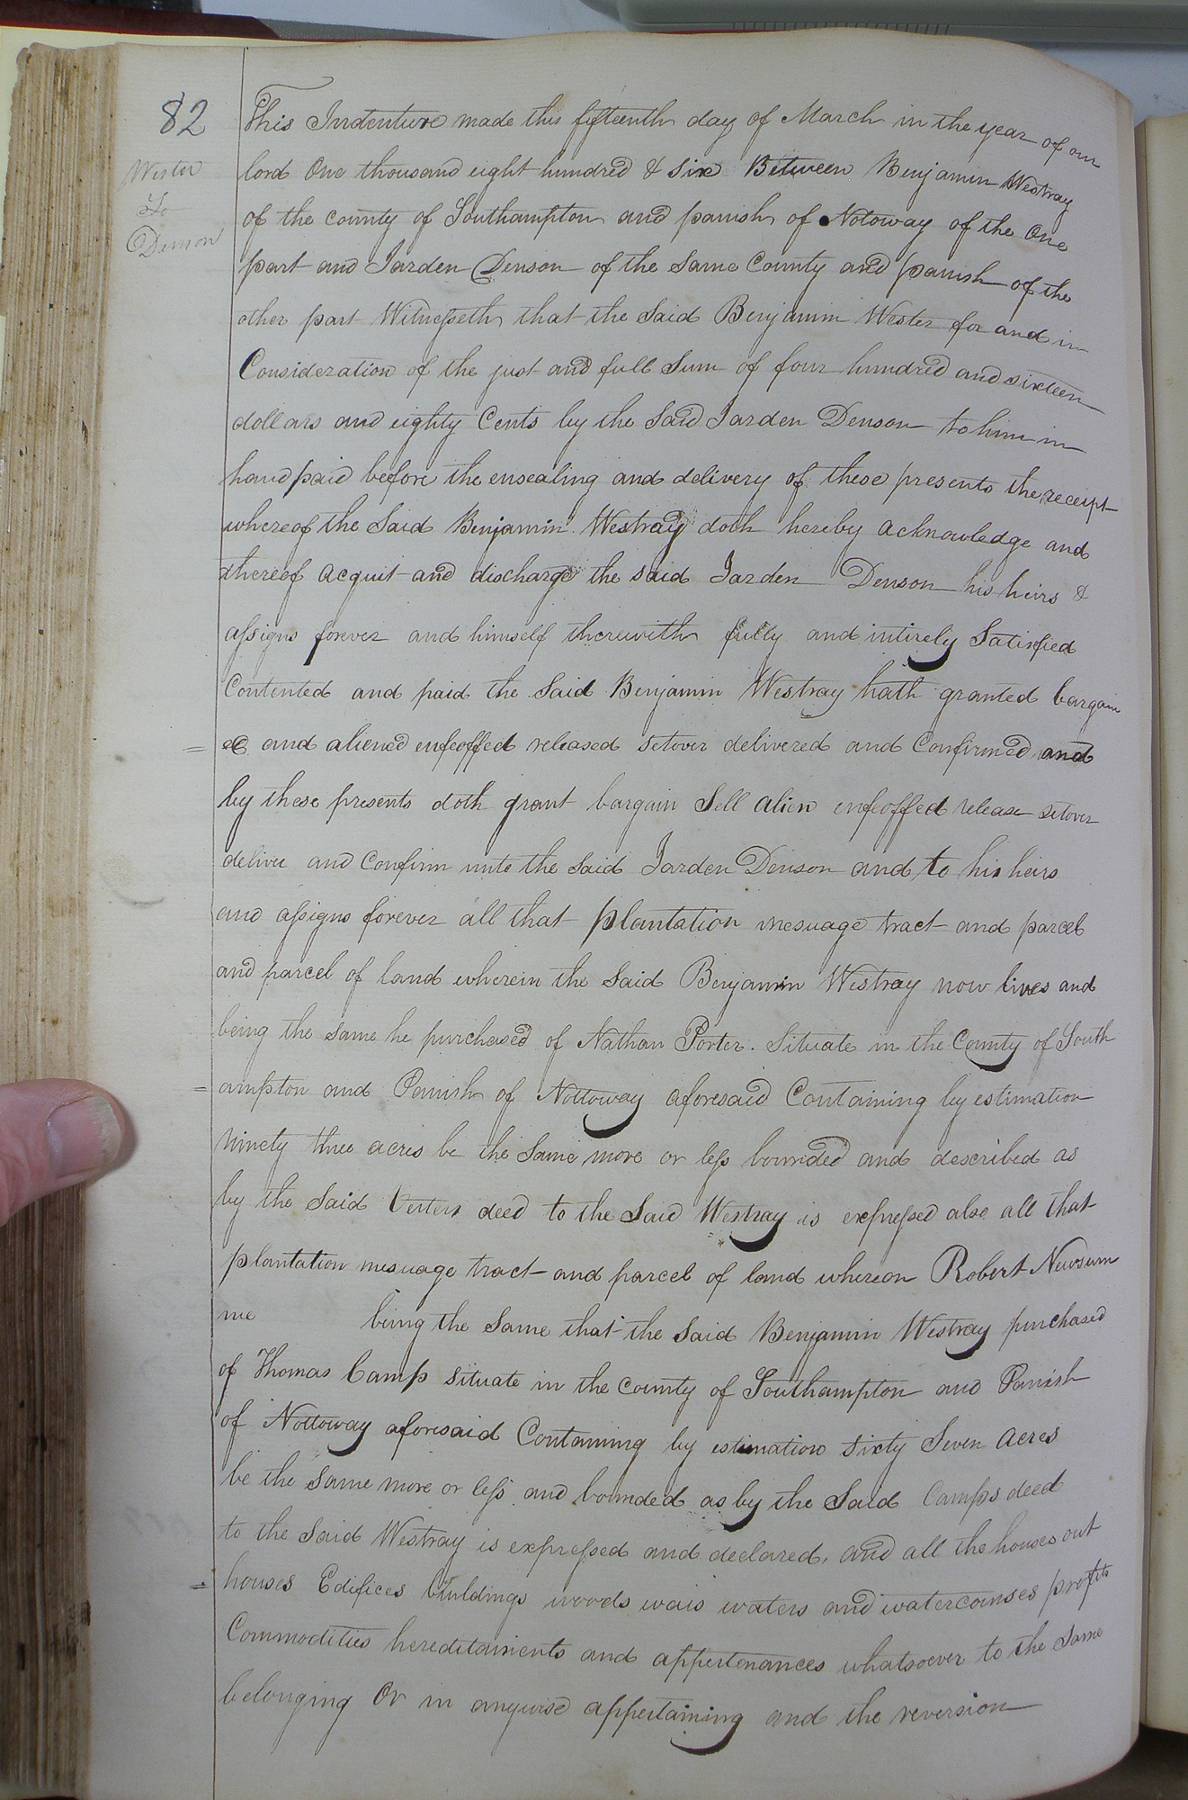 82
Wester
To
Denson
This Indenture made this fifteenth day of March in the year of our
lord One thousand eight hundred & six Between Benjamin Westray
of the county of Southampton and parish of Notoway of the One
part and Jarden Denson of the Same County and parish of the
other part Witnesseth that the Said Benjamin Wester for and in
Consideration of the just and full Sum of four hundred and sixteen
dollars and eighty Cents by the Said Jarden Denson to him in
hand paid before the ensealing and delivery of these presents the receipt
whereof the Said Benjamin Westray doth hereby acknowledge and
thereof acquit and discharge the said Jarden Denson his heirs &
assigns forever and himself therewith fully and intirely Satisfied
Contented and paid the Said Benjamin Westray hath granted bargain
= ed and aliened enfeoffed released setover delivered and Confirmed and
by these presents doth grant bargain Sell alien enfeoffed release setover
deliver and Confirm unto the Said Jarden Denson and to his heirs
and assigns forever all that plantation mesuage tract and parcel
and parcel of land wherein the Said Benjamin Westray now lives and
being the Same he purchased of Nathan Porter. Situate in the County of South
= ampton and Parish of Nottoway aforesaid Containing by estimation
Ninety three acres be the Same more or less bounded and described as
by the Said deed to the Said Westray is expressed also all that
plantation mesuage tract and parcel of land whereon Robert Newsum
me being the Same that the Said Benjamin Westray purchased
of Thomas Camp Situate in the county of Southampton and Parish
of Nottoway aforesaid Containing by estimation Sixty Seven acres
be the Same more or less and bounded as by the Said Camps deed
to the Said Westray is expressed and declared, and all the houses out
= houses Edifices buildings woods wais waters and watercourses profits
Commodities hereditaments and appertenances whatsoever to the Same
belonging Or in anywise appertaining and the reversion